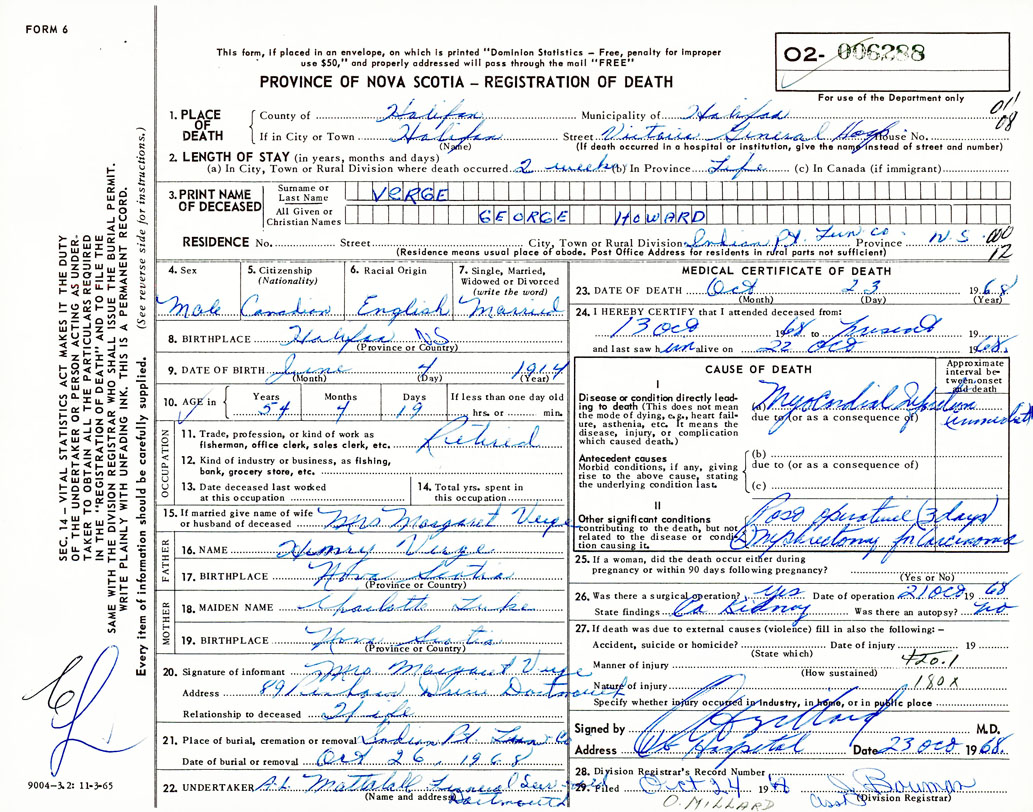 FORM 6
This form, if placed in an envelope, on which is printed "Dominion Statistics – Free, penalty for improper
use $50," and properly addressed will pass through the mail "FREE"
O2- 006288
For use of the Department only
PROVINCE OF NOVA SCOTIA – REGISTRATION OF DEATH
011
08
1. PLACE OF DEATH
County of Halifax Municipality of Halifax
If in City or Town Halifax Street Victoria General Hosp House No.
(Name) (If death occurred in a hospital or institution, give the name instead of street and number)
2. LENGTH OF STAY (in years, months and days)
(a) In City, Town or Rural Division where death occurred 2 weeks (b) In Province Life (c) In Canada (if immigrant)
3. PRINT NAME OF DECEASED
Surname or Last Name VERGE
All Given or Christian Names GEORGE HOWARD
RESIDENCE No. Street City, Town or Rural Division Indian Pt. Lun Co. Province N S
(Residence means usual place of abode. Post Office Address for residents in rural parts not sufficient)
00
12
4. Sex Male
5. Citizenship (Nationality) Canadian
6. Racial Origin English
7. Single, Married, Widowed or Divorced (write the word) Married
8. BIRTHPLACE Halifax NS
(Province or Country)
9. DATE OF BIRTH June 4 1914
(Month) (Day) (Year)
10. AGE in Years 54 Months 4 Days 19 If less than one day old hrs. or min.
OCCUPATION
11. Trade, profession, or kind of work as fisherman, office clerk, sales clerk, etc. Retired
12. Kind of industry or business, as fishing, bank, grocery store, etc.
13. Date deceased last worked at this occupation
14. Total yrs. spent in this occupation
15. If married give name of wife or husband of deceased Mrs Margaret Verge
FATHER
16. NAME Henry Verge
17. BIRTHPLACE Nova Scotia
(Province or Country)
MOTHER
18. MAIDEN NAME Charlotte
19. BIRTHPLACE Nova Scotia
(Province or Country)
20. Signature of informant Mrs Margaret Verge
Address 89 Dartmouth
Relationship to deceased Wife
21. Place of burial, cremation or removal Indian Pt. Lun Co
Date of burial or removal Oct 26, 1968
22. UNDERTAKER A.L. Mattatall Funeral
(Name and address) Dartmouth
MEDICAL CERTIFICATE OF DEATH
23. DATE OF DEATH Oct 23 1968
(Month) (Day) (Year)
24. I HEREBY CERTIFY that I attended deceased from:
13 Oct 1968 to present 19
and last saw him alive on 22 Oct 1968.
CAUSE OF DEATH
Approximate interval between onset and death
I
Disease or condition directly leading to death (This does not mean the mode of dying, e.g., heart failure, asthenia, etc. It means the disease, injury, or complication which caused death.)
(a) Myocardial
due to (or as a consequence of)
Antecedent causes
Morbid conditions, if any, giving rise to the above cause, stating the underlying condition last.
(b)
due to (or as a consequence of)
(c)
II
Other significant conditions contributing to the death, but not related to the disease or condition causing it.
Post operative (3 days)
Nephrectomy for Carcinoma
25. If a woman, did the death occur either during pregnancy or within 90 days following pregnancy?
(Yes or No)
26. Was there a surgical operation? yes Date of operation 21 Oct 1968
State findings Ca Kidney Was there an autopsy? no
27. If death was due to external causes (violence) fill in also the following: –
Accident, suicide or homicide? Date of injury 19
(State which) 420.1
Manner of injury
(How sustained)
Nature of injury 180x
Specify whether injury occurred in industry, in home, or in public place
Signed by M.D.
Address VG Hospital Date 23 Oct 1968.
28. Division Registrar's Record Number
29. Filed Oct 24 1968 J. Bowman
O. MILLARD (Division Registrar)
SEC. 14 – VITAL STATISTICS ACT MAKES IT THE DUTY
OF THE UNDERTAKER OR PERSON ACTING AS UNDER-
TAKER TO OBTAIN ALL THE PARTICULARS REQUIRED
IN THE "REGISTRATION OF DEATH" AND TO FILE THE
SAME WITH THE DIVISION REGISTRAR WHO SHALL ISSUE THE BURIAL PERMIT.
WRITE PLAINLY WITH UNFADING INK. THIS IS A PERMANENT RECORD.
Every item of information should be carefully supplied. (See reverse side for instructions.)
9004-3.2: 11-3-65